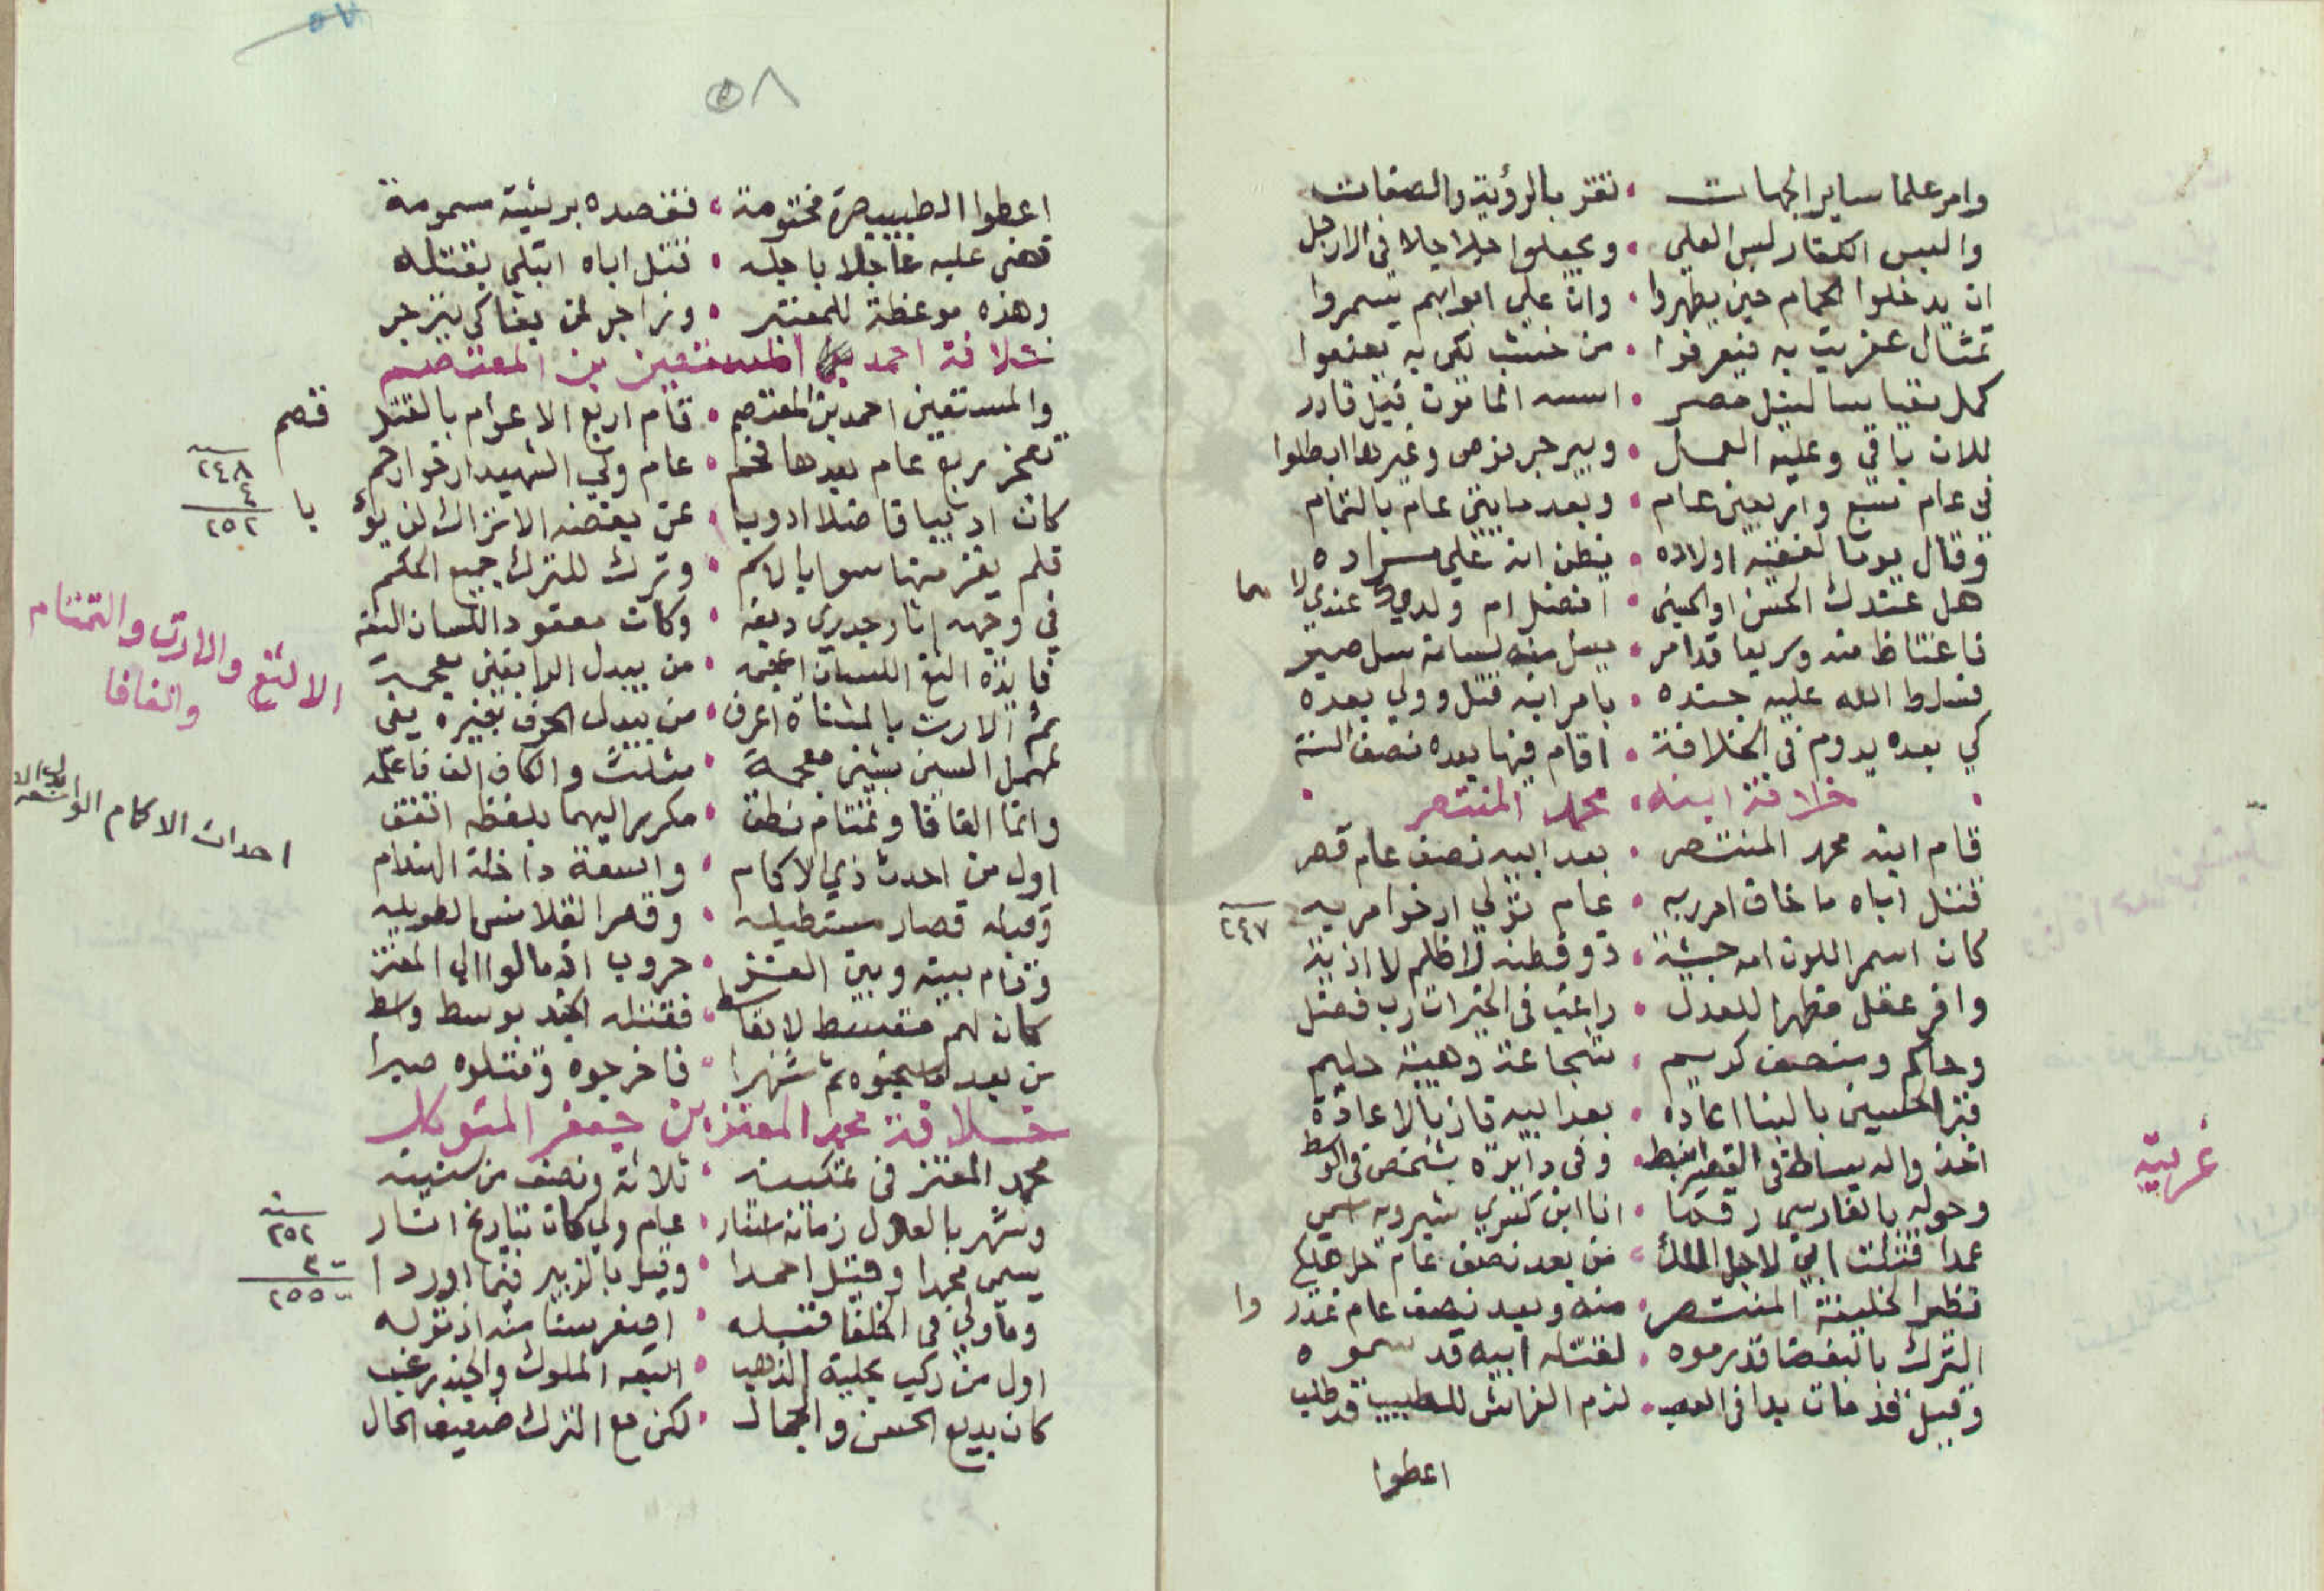 وامر علما ساير الجهات • تقر بالرؤية والصفات
والبس الكفار لبس العلى • ويجعلوا جلاجلا فى الارجل
ان يدخلوا الحمام حين يطهروا • وان على ابوابهم يسمروا
تمثال عفريت به فيعرفوا • من خشب لكى به
كمل مقياسا لنيل مصر • اسسه المامون قيل قادر
للان باقي وعليه العمل • وبير جرهوهم وغيرها ابطلوا
فى عام سبع واربعين عام • وبعد مايتين عام بالتمام
وقال يوما اولاده • يظن انه على مراده
هل عندك الحسن او الحسين • افضل ام ولدي عندي لا هما
فاغتاظ منه وسريعا قد امر • بسل منه لسانه سل صبر
فسلط الله عليه جنده • بامر ابنه قتل وولي بعده
كي بعده يدوم فى الخلافة • اقام فيها بعده نصف السنة
• خلافة ابنه محمد المنتصر •
قام ابنه محمد المنتصر • بعد ابيه نصف عام قهر
قتل اباه ما خاف امر ربه • عام تولي ارخوا مر به
٢٤٧
كان اسمر اللون امه حبشية • ذو فطنة لا ظلم لا اذية
وافر عقل مظهرا للعدل • راغب فى الخيرات رب فضل
وحاكم ومنصف كريم • شجاعة وهيبة حليم
قبر الحسين بالبنا اعاده • بعد ابيه فاز بالاعادة
اتخذ واله بساط فى القصر انبسط • وفى دايره شخص فى الوسط
وحوله بالفارسي رقما • انا ابن كسري شيرويه اسمي
عمدا قتلت ابي لاجل الملك • من بعد نصف عام حل هلكي
غريبة
نظر الخليفة المنتصر • منه وبعد نصف عام غدر وا
الترك بالبغضا قد رموه • لقتله ابيه قد سموه
وقيل قد مات بدا فى العصب • لزم الفراش للطبيب قد طلب
اعطوا
٥٨
اعطوا الطبيب صرة مختومة • ففصده بريشة مسمومة
قضى عليه عاجلا باجله • قتل اباه ابتلى بقتله
وهذه موعظة للمعتبر • وزاجر لمن بغا كى ينزجر
خلافة احمد المستعين بن المعتصم
والمستعين احمد بن المعتصم • قام اربع الاعوام بالقتل قصم
تعجز ربع عام بعدها فخم • عام ولي الشهيد ارخوا رحم
٢٤٨
٤
٢٥٢
كان اديبا فاضلا ادوبا • عن بعضه الاتراك لن يؤ با
فلم يفز منها سوا بالاسم • وترك للترك جميع الحكم
في وجهه اثار جدري دبغه • وكان معقود اللسان الثغه
فايدة الثغ اللسان • من يبدل الرا بغين معجمه
ثم الارت بالمثناة اعرف • من يبدل الحرف بغيره يفى
لمهمل السين بشين معجمة • مثلث والكاف الف فاعلمه
وانما الفافا وتمتام نطق • مكرر اليهما بلفظه اتفق
الالثغ والارت والتمتام والفافا
اول من احدث ذي الاكمام • واسعة داخلة الهندام
احداث الاكمام الواسعة
وقبله قصار مستطيله • وقصر القلانس الطويله
وقام بينه وبين المعتز • حروب اذ مالوا الى المعتز
كان لهم مقسط لا قاسط • فقتله الجند بوسط واسط
من بعد ما سجنوه ثم شهرا • فاخرجوه وقتلوه صبرا
خلافة محمد المعتز بن جعفر المتوكل
محمد المعتز فى تمكينه • ثلاثة ونصف من سنينه
وشهر بالعدل زمانه استنار • عام ولي كان بتاريخ اشار
سنة
٢٥٢
٣
٢٥٥
يسمى محمدا وقيل احمدا • وقيل بالزبير فيما اوردا
وما ولي فى الخلفا قبله • اصغر سنا منه اذ توله
اول من ركب بحلية الذهب • اتبعه الملوك والجند رغب
كان بديع الحسن والجمال • لكن مع الترك ضعيف الحال